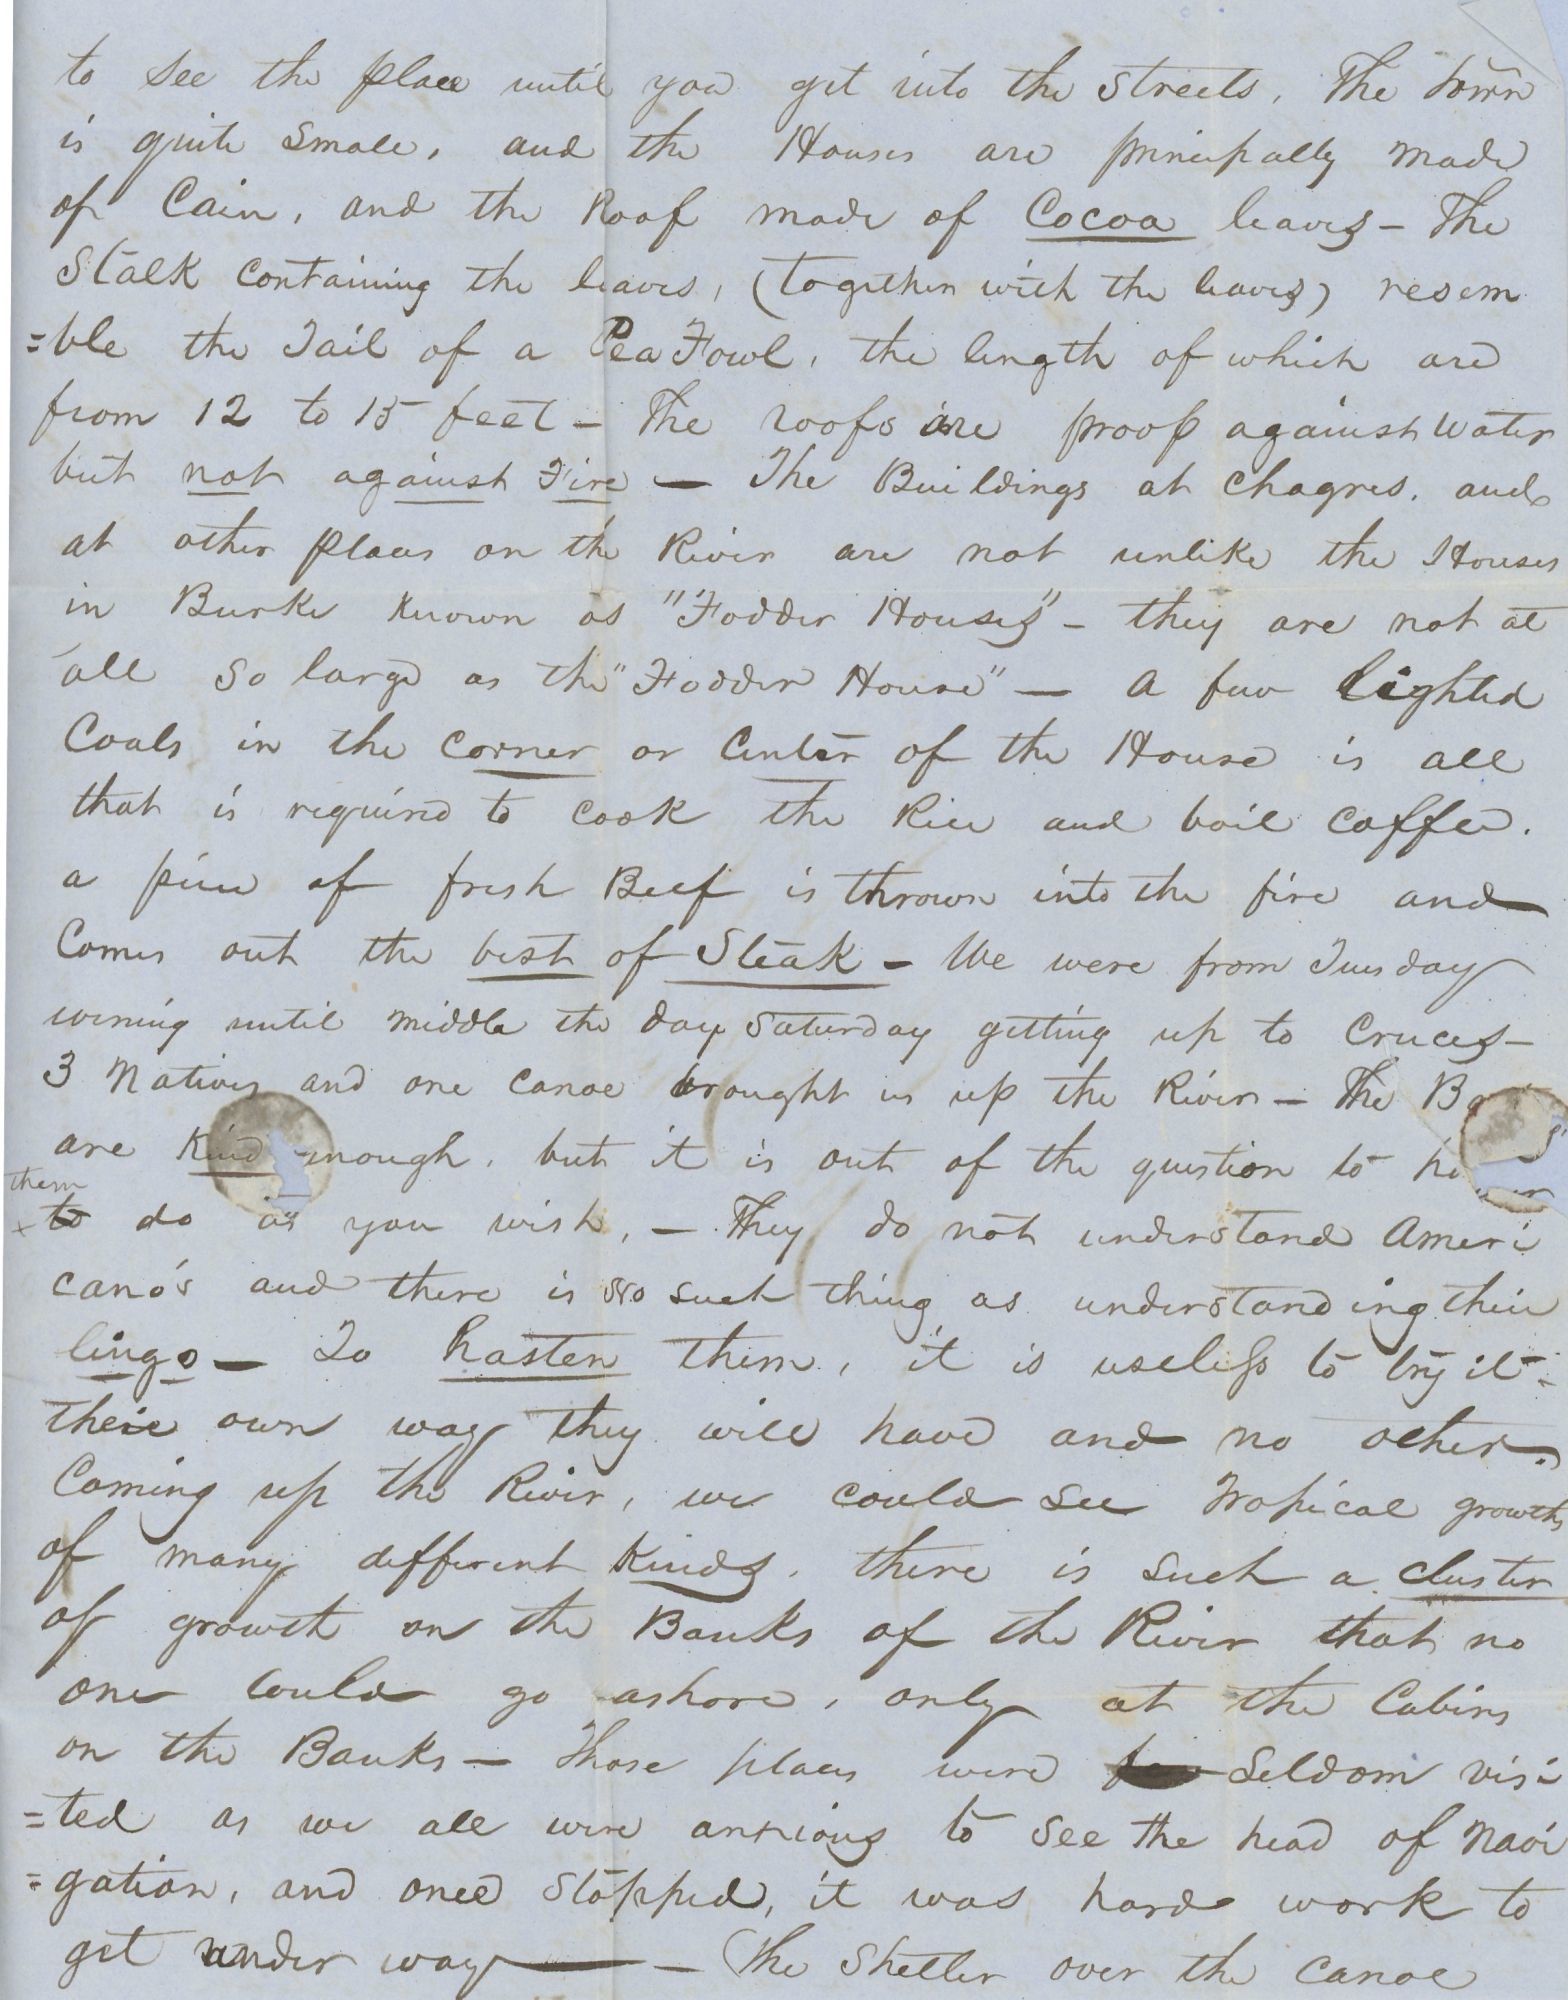 to see the place until you get into the streets, The town
is quite small, and the Houses are principally made
of Cain, and the Roof made of Cocoa leaves - The
Stalk containing the leaves, (together with the leaves) resem
=ble the Tail of a Pea Fowl, the length of which are
from 12 to 15 feet - The roofs are proof against water
but not against Fire - The Buildings at Chagres, and
at other places on the River are not unlike the Houses
in Burke known as "Fodder Houses" - they are not at
all so large as the "Fodder House" - A few lighted
Coals in the corner or Center of the House is all
that is required to cook the Rice and boil coffee.
a piece of fresh Beef is thrown into the fire and
Comes out the best of Steak - We were from Tuesday
evening until middle the day Saturday getting up to Cruces -
3 Natives and one canoe brought us up the River - The
are Kind enough, but it is out of the question to
them
x to do as you wish, - They do not understand Ameri
cano's and there is no such thing as understanding their
lingo - To hasten them, it is useless to try it -
their own way they will have and no other.
Coming up the River, we could see Tropical growths
of many different Kinds, there is such a cluster
of growth on the Banks of the River that no
one could go ashore, only at the Cabins
on the Banks - Those places were seldom visi
=ted as we all were anxious to see the head of Navi
=gation, and once stopped, it was hard work to
get under way - The Shelter over the canoe